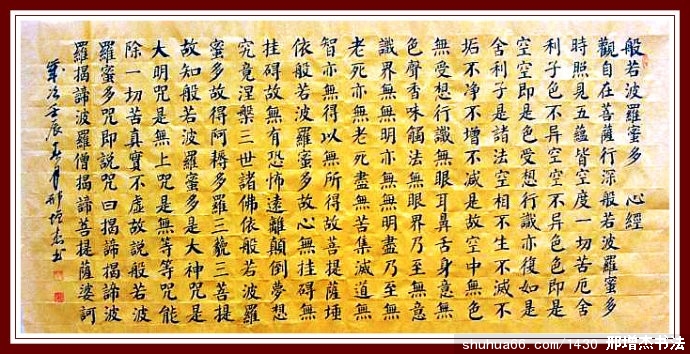 般若波羅蜜多 心經
觀自在菩薩行深般若波羅蜜多
時照見五蘊皆空度一切苦厄舍
利子色不异空空不异色色即是
空空即是色受想行識亦復如是
舍利子是諸法空相不生不滅不
垢不净不增不減是故空中無色
無受想行識無眼耳鼻舌身意無
色聲香味觸法無眼界乃至無意
識界無無明亦無無明盡乃至無
老死亦無老死盡無苦集滅道無
智亦無得以無所得故菩提薩埵
依般若波羅蜜多故心無挂碍無
挂碍故無有恐怖遠離顛倒夢想
究竟涅槃三世諸佛依般若波羅
蜜多故得阿耨多羅三藐三菩提
故知般若波羅蜜多是大神咒是
大明咒是無上咒是無等等咒能
除一切苦真實不虛故說般若波
羅蜜多咒即說咒曰揭諦揭諦波
羅揭諦波羅僧揭諦菩提薩婆訶
歲次壬辰 月邢增杰书
邢增杰书法